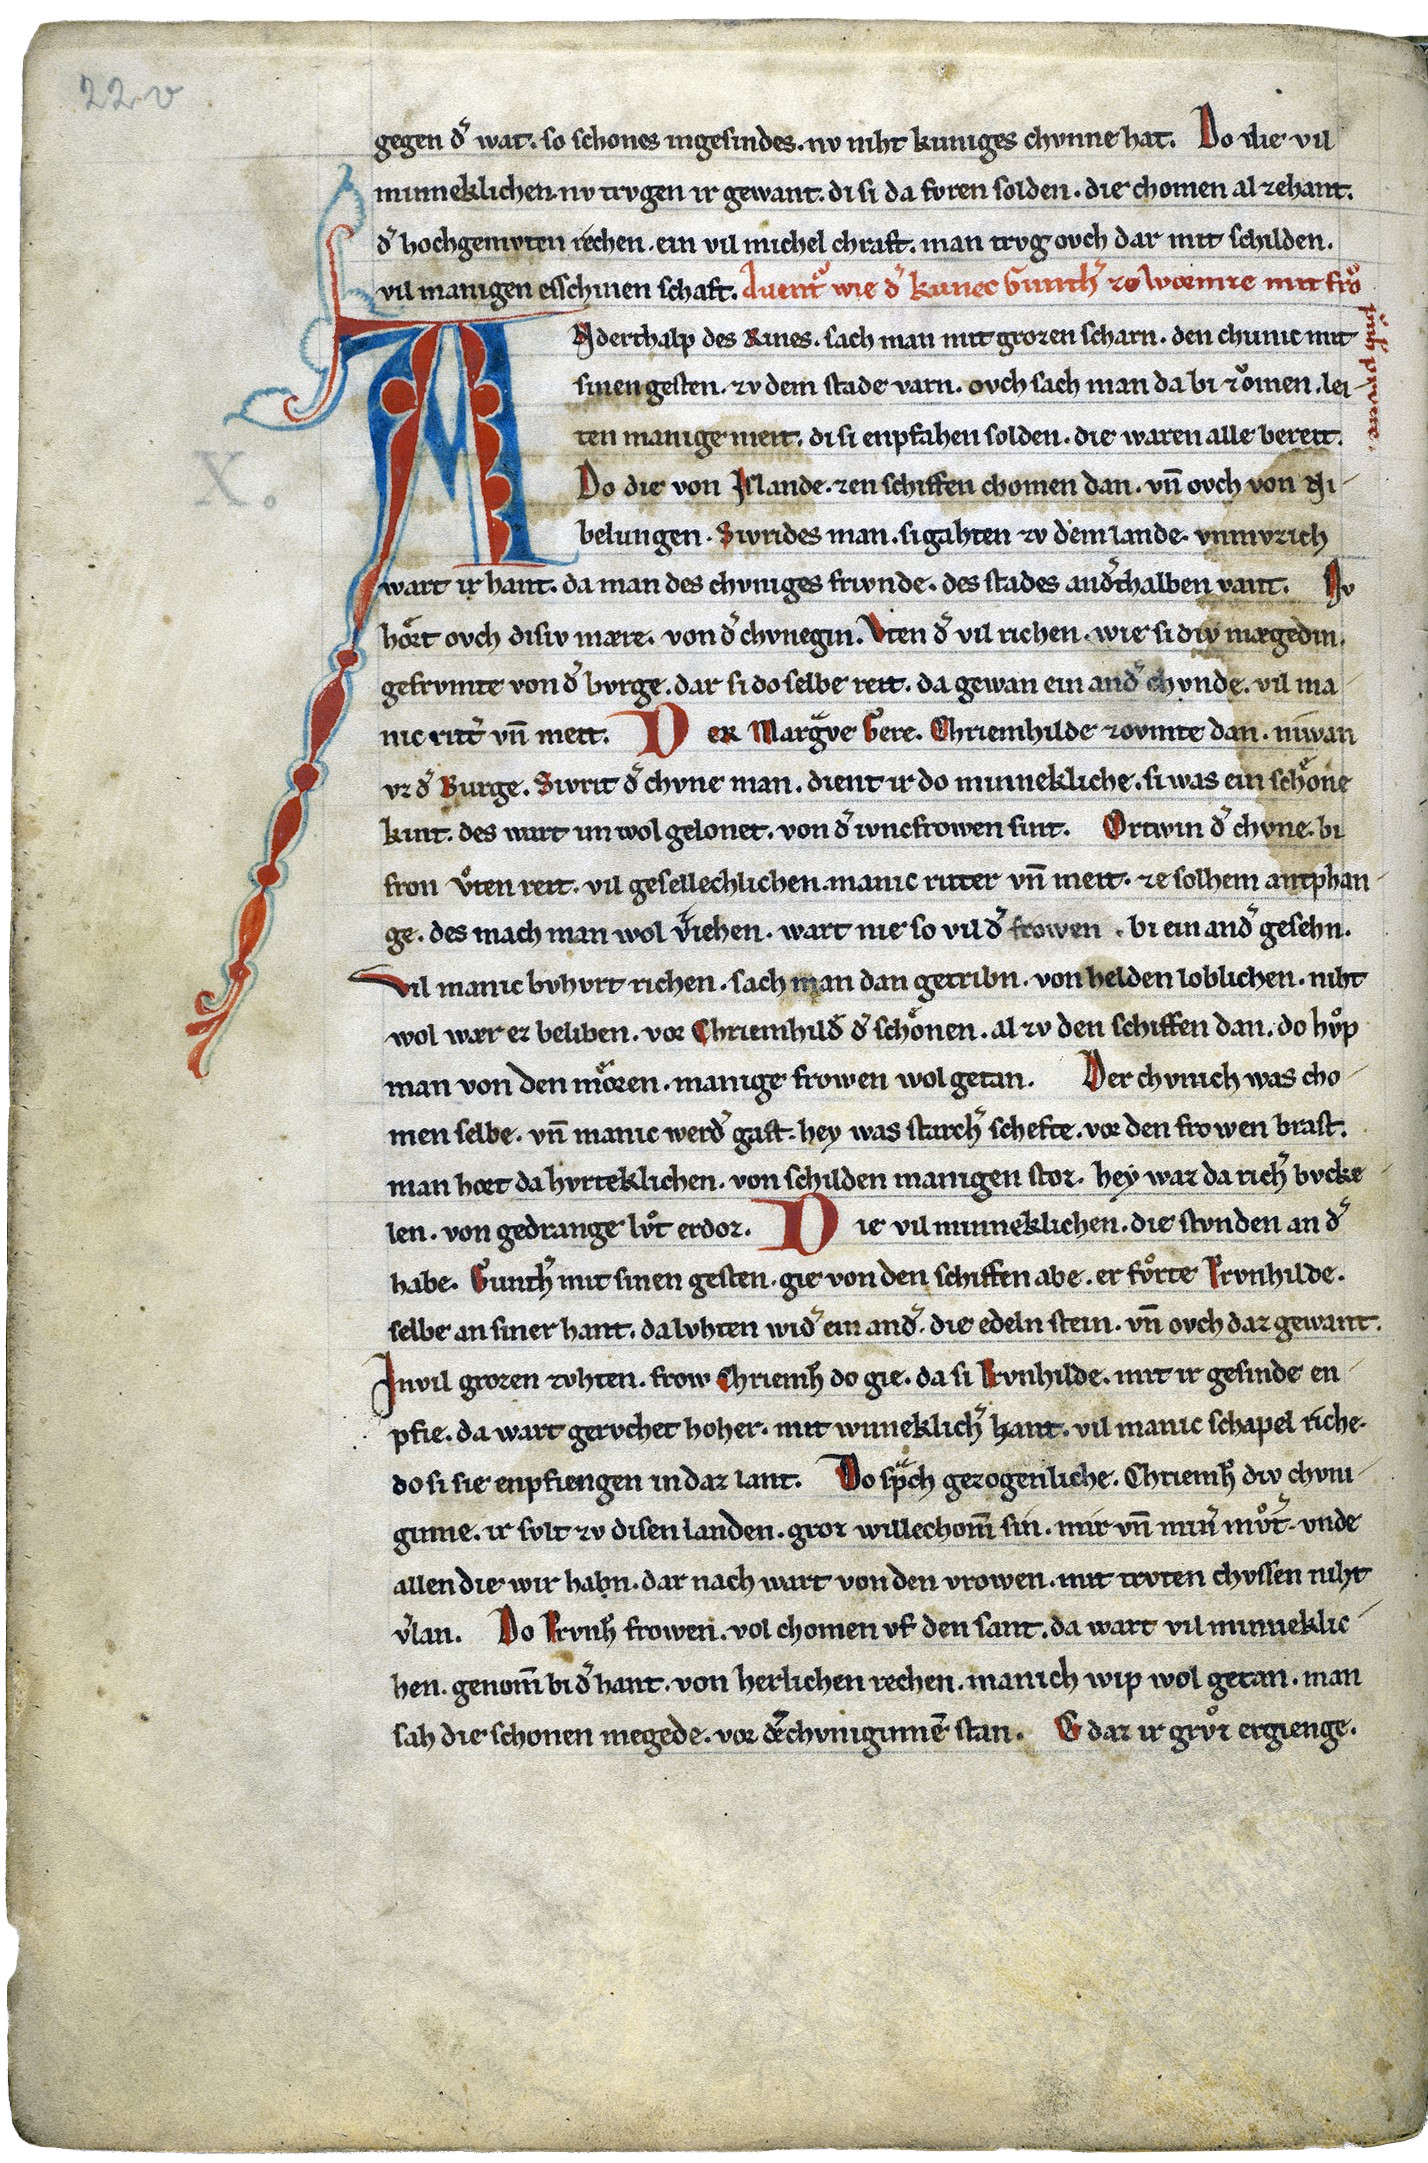 22v
gegen d͛ wat. so schones ingesindes. nv niht kuniges chvnne hat. Do die vil
minneklichen. nv trvgen ir gewant. di si da fvren solden. die chomen al zehant.
d͛ hochgemvten rechen. ein vil michel chraft. man trvg ovch dar mit schilden.
vil manigen eschinen schaft. Auentv̊ wie d͛ kunec Gunth͛ ze Wormze mit frǒ
prnh̛ prvtte.
Anderthalp des Rines. sach man mit grozen scharn. den chunic mit
sinen gesten. zv dem stade varn. ovch sach man da bi zǒmen. lei-
ten manige meit. di si enpfahen solden. die waren alle bereit.
Do die von Islande. zen schiffen chomen dan. vn̄ ovch von Ni-
belungen. Sivrides man. si gahten zv dem lande. vnmvzich
X.
wart ir hant. da man des chvniges frivnde. des stades and͛thalben vant. Nv
hoͤrt ovch disiv mære. von d͛ chvnegin. Vten d͛ vil richen. wie si div mægedin.
gefrvmte von d͛ bvrge. dar si do selbe reit. da gewan ein and͛ chvnde. vil ma-
nic ritt͛ vn̄ meit. Der Margͣve Gere. Chriemhilde zovmte dan. niwan
vz d͛ Burge. Sivrit d͛ chvne man. dient ir do minnekliche. si was ein schoͤne
kint. des wart im wol gelonet. von d͛ ivncfrowen sint. Ortwin d͛ chvne. bi
fron v̊ten reit. vil gesellechlichen. manic ritter vn̄ meit. ze solhem antphan-
ge. des mach man wol v͛iehen. wart nie so vil d͛ frowen. bi ein and͛ gesehn.
Vil manic bvhvrt richen. sach man dan getribn. von helden loblichen. niht
wol wær ez beliben. vor Chriemhild͛ d͛ schoͤnen. al zv den schiffen dan. do hv̊p
man von den moͤren. manige frowen wol getan. Der chvnich was cho-
men selbe. vn̄ manic werd͛ gast. hey was starch͛ schefte. vor den frowen brast.
man hort da hvrteklichen. von schilden manigen stoz. hey waz da rich͛ bvcke-
len. von gedrange lv̊t erdoz. Die vil minneklichen. die stvnden an d͛
habe. Gunth͛ mit sinen gesten. gie von den schiffen abe. er fv̊rte Prvnhilde.
selbe an siner hant. da lvhten wid͛ ein and͛. die edeln stein. vn̄ ovch daz gewant.
In vil grozen zvhten. frow Chriemh̛ do gie. da si Prvnhilde. mit ir gesinde en-
pfie. da wart gervchet hoher. mit wnneklich͛ hant. vil manic schapel riche.
do si sie enpfiengen in daz lant. Do spͣch gezogenliche. Chriemh̛ div chvni-
ginne. ir svlt zv disen landen. groz willechom̄ sin. mir vn̄ min͛ mv̊t͛. vnde
allen die wir habn. dar nach wart von den vrowen. mit trvten chvssen niht
v͛lan. Do Prvnh̛ frowen. vol chomen vf den sant. da wart vil minneklic-
hen. genom̄ bi d͛ hant. von herlichen rechen. manich wip wol getan. man
sah die schonen megede. vor d͛ chvniginne stan. E daz ir grv̊z ergienge.